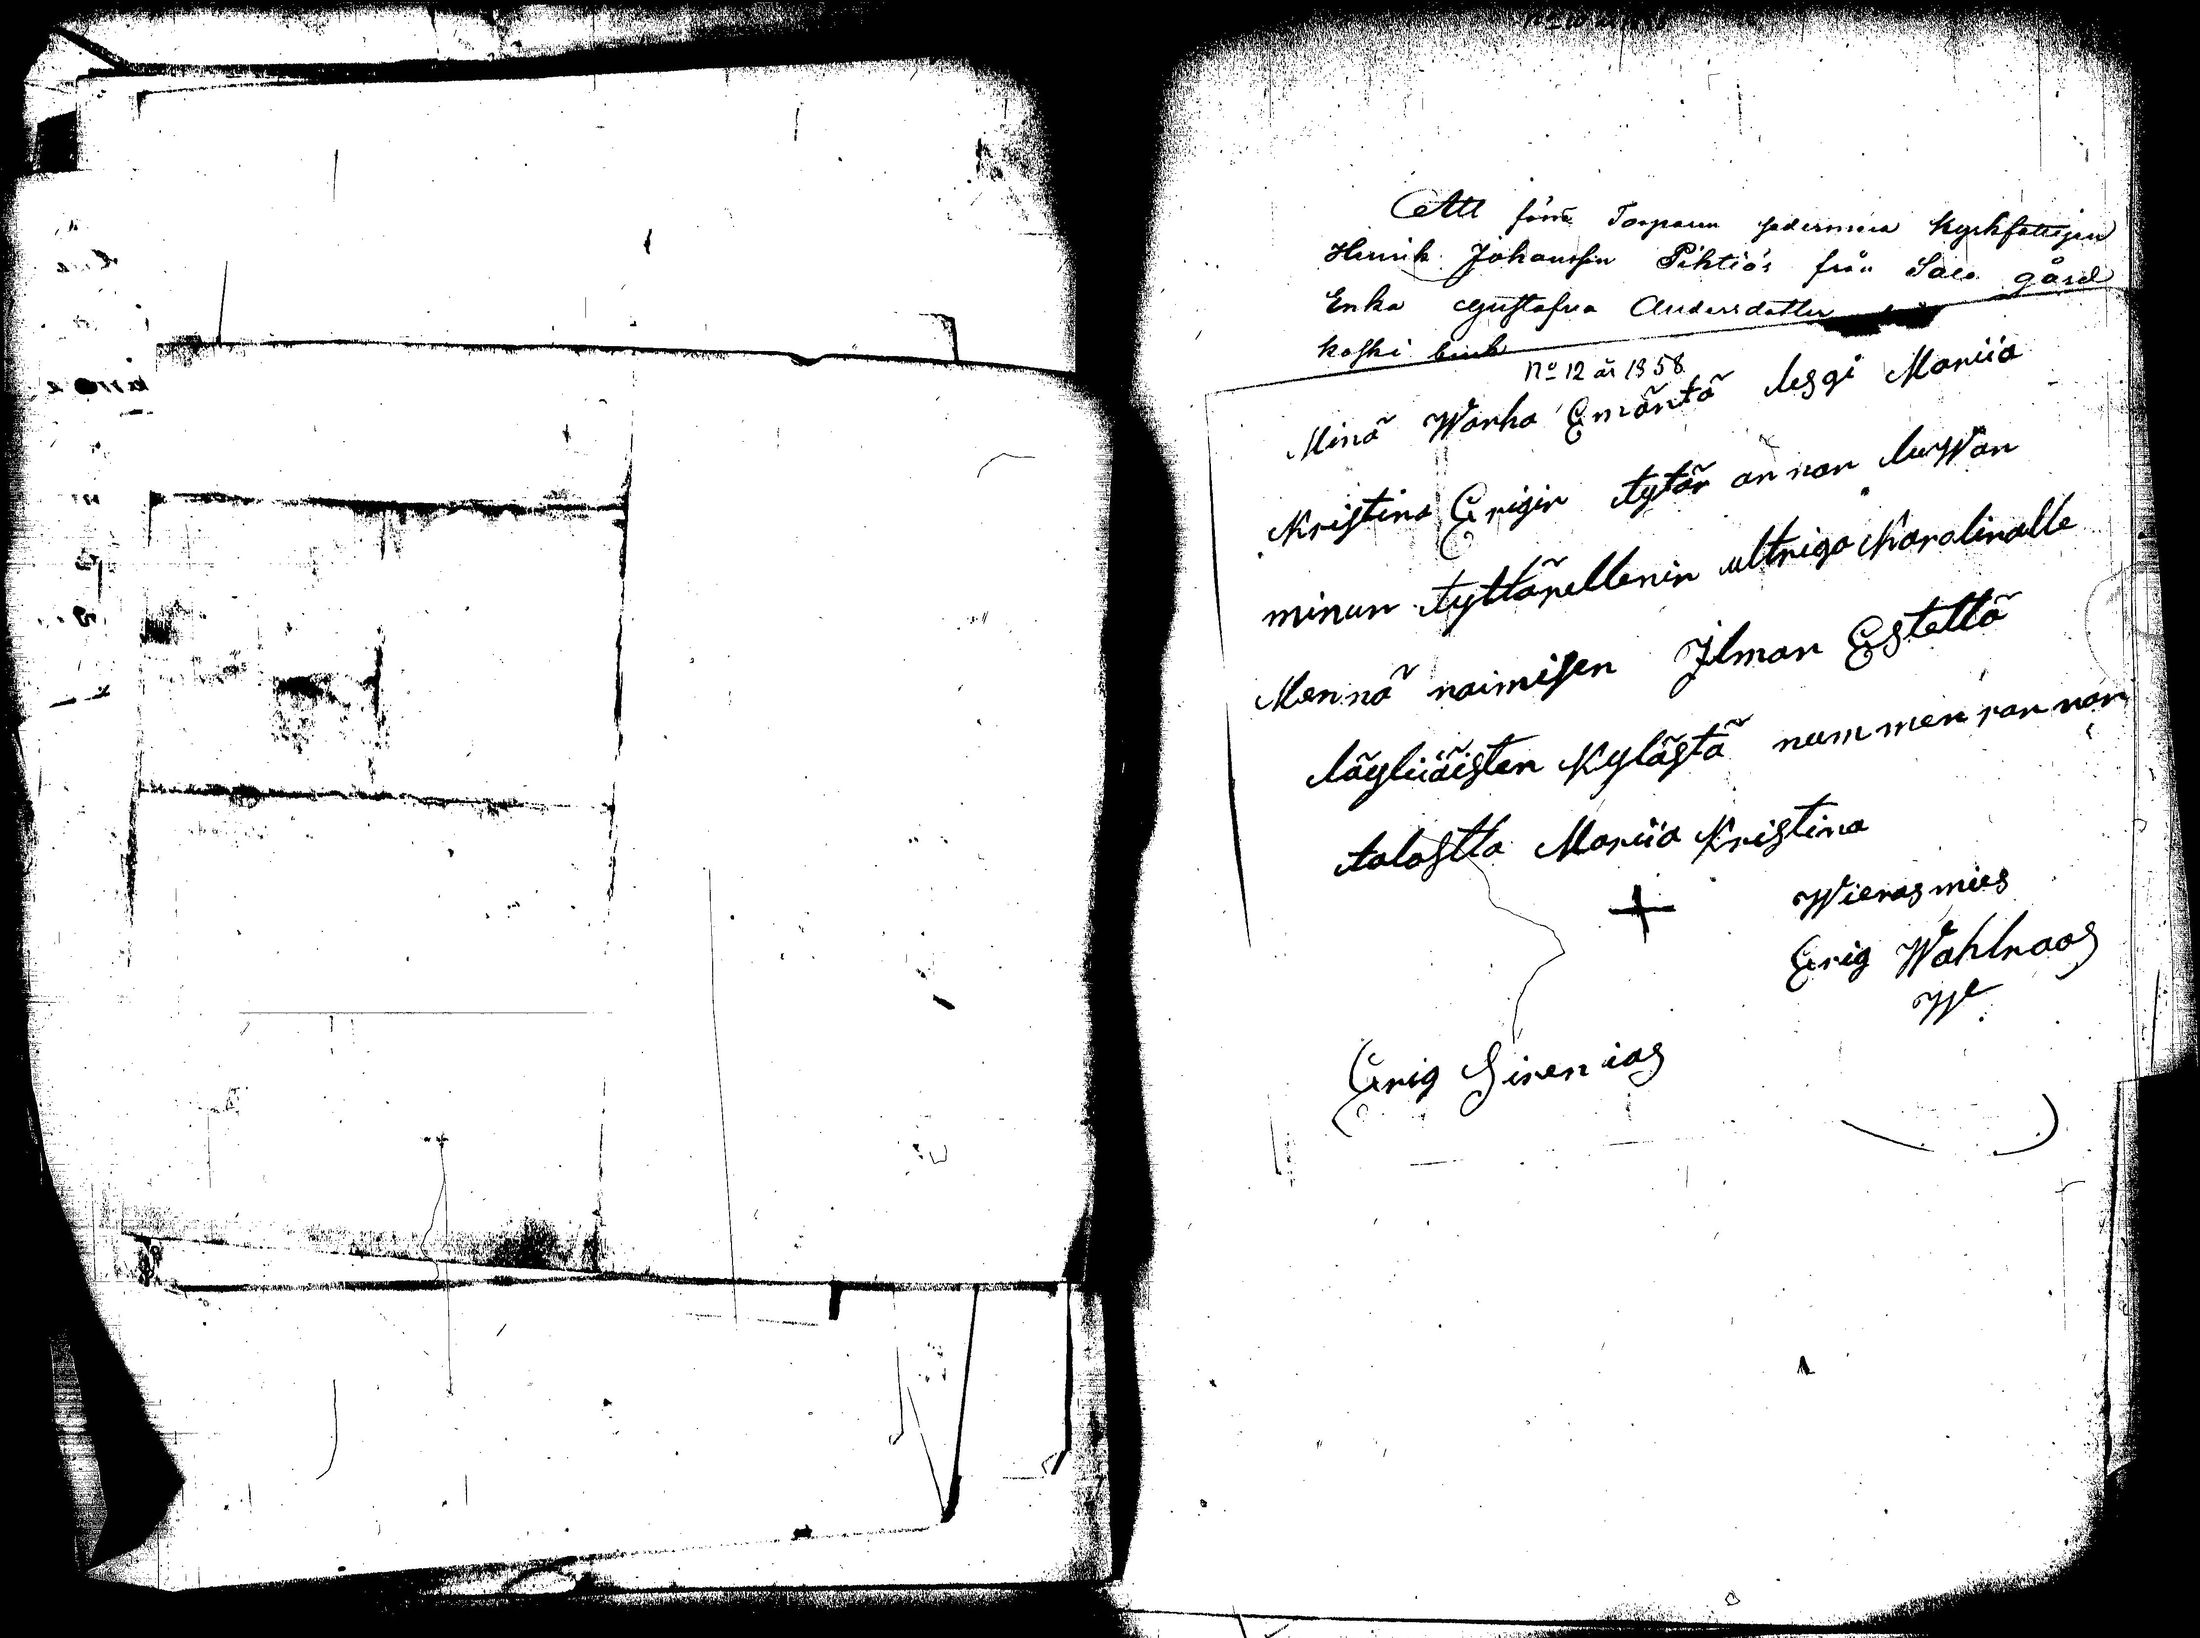 Att förre Torparen sedermera Kyrkfattigen
Henrik Johansson Pihtiös från Salo gård
Enka Gustafva Andersdotter
Koski
No 12 år 1858
Minä Warha Emäntä lesgi Mariia
Kristina Erigin tytär annan luWan
minun tyttärellenin ulrriga Karolinalle
Mennä naimisen Jlman Estettä
läyliäisten Kylästä nummen rannan
talostta Mariia Kristina
+
Wierasmies
Erig Wahlroos
Erig Sirenias